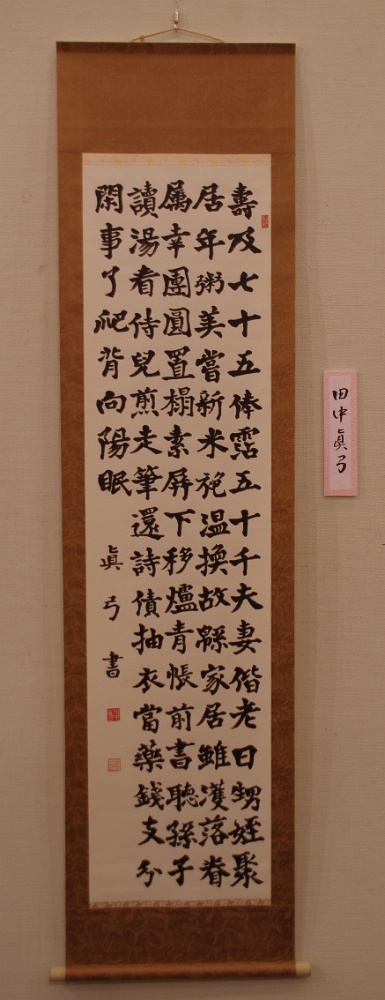 壽及七十五俸霑五十千夫妻偕老日甥姪聚
居年粥美嘗新米袍温換故緜家居雖濩落眷
属幸團圓置榻素屏下移爐青帳前書聴孫子
讀湯看侍兒煎走筆還詩債抽衣當藥錢支分
閑事了爬背向陽眠
眞弓書
田中眞弓